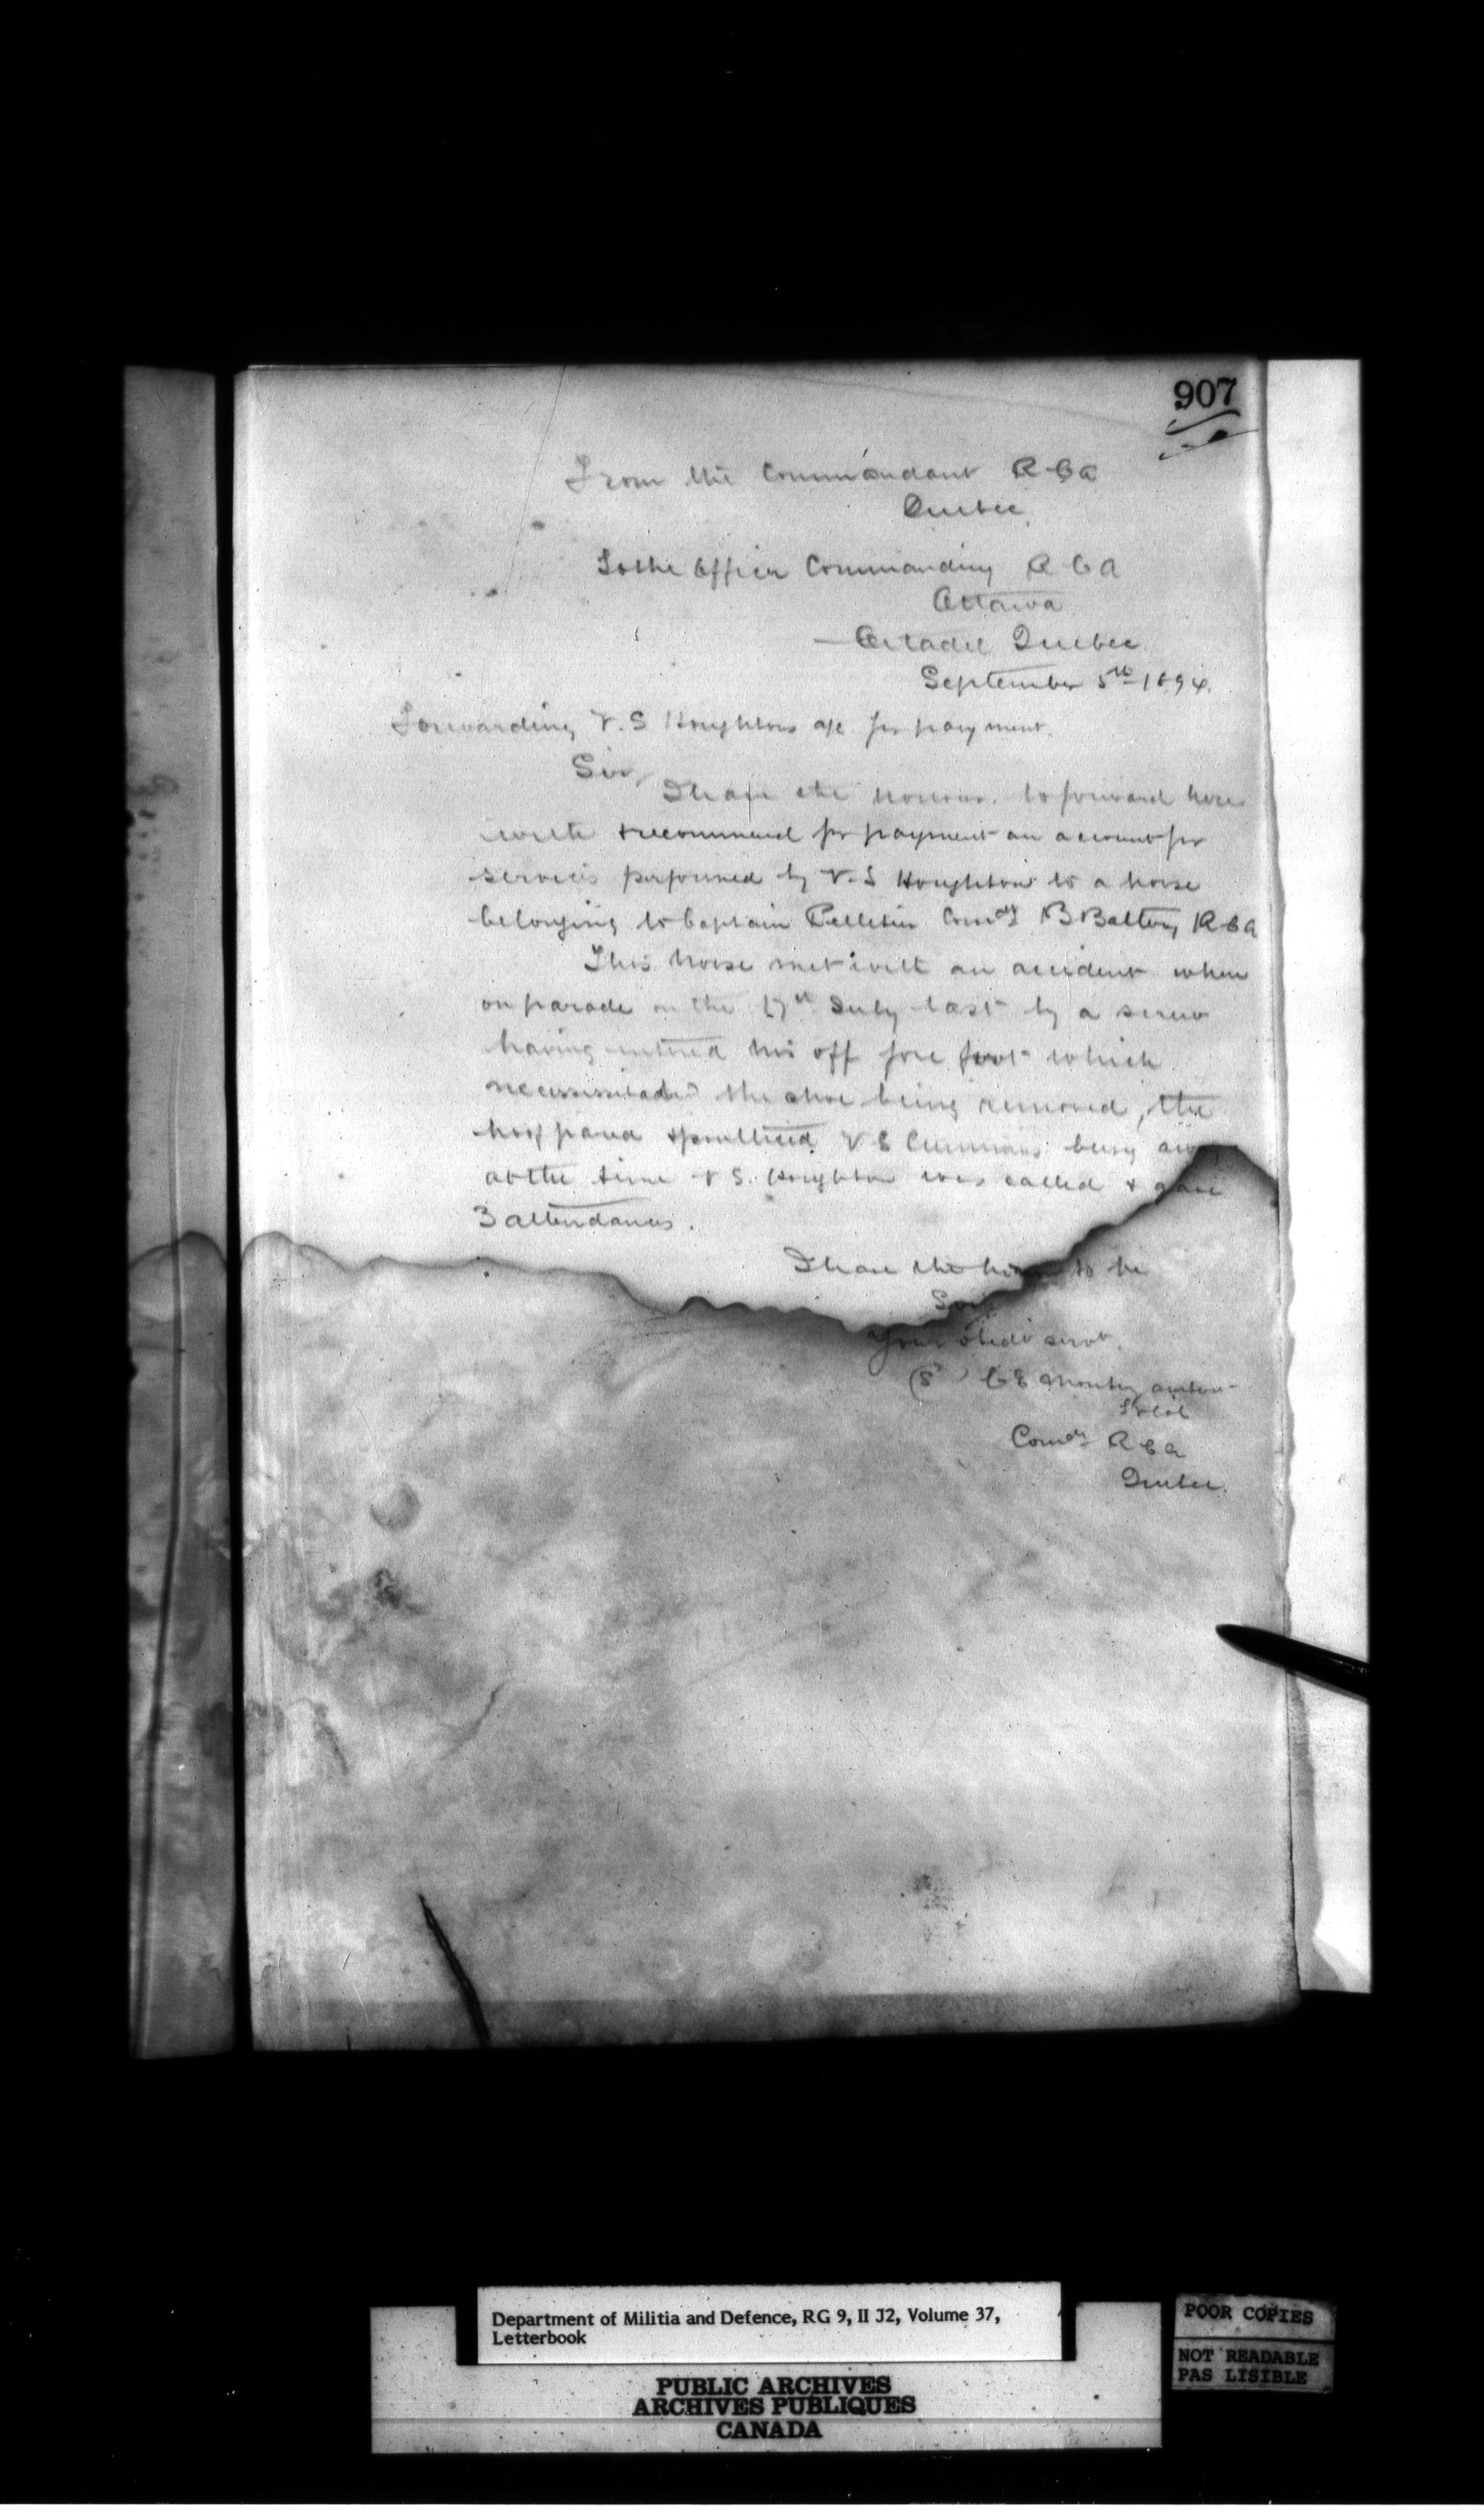 907
From the Commandant R C A
Quebec
To the Officer Commanding R C A
Ottawa
Citadel Quebec
September 5th 1894.
Forwarding V. S Houghtons a/c for payment.
Sir,
I have the honour to forward here
with & recommend for payment an account for
services performed by V. S Houghton to a horse
belonging to Captain Pelletier Comdg B Battery R C A
This horse met with an accident when
on parade on the 17th July last by a screw
having entered his off fore foot which
the shoe being removed, the
hoof pared & poulticed. V S being
at the time V S. Houghton was called & gave
3 attendances.
I have the honor to be
Sir
Your obedt servt
(S ) C E Montizambert
Lt Col
Comdt R C A
Quebec.
Department of Militia and Defence, RG 9, II J2, Volume 37,
Letterbook
PUBLIC ARCHIVES
ARCHIVES PUBLIQUES
CANADA
POOR COPIES
NOT READABLE
PAS LISIBLE